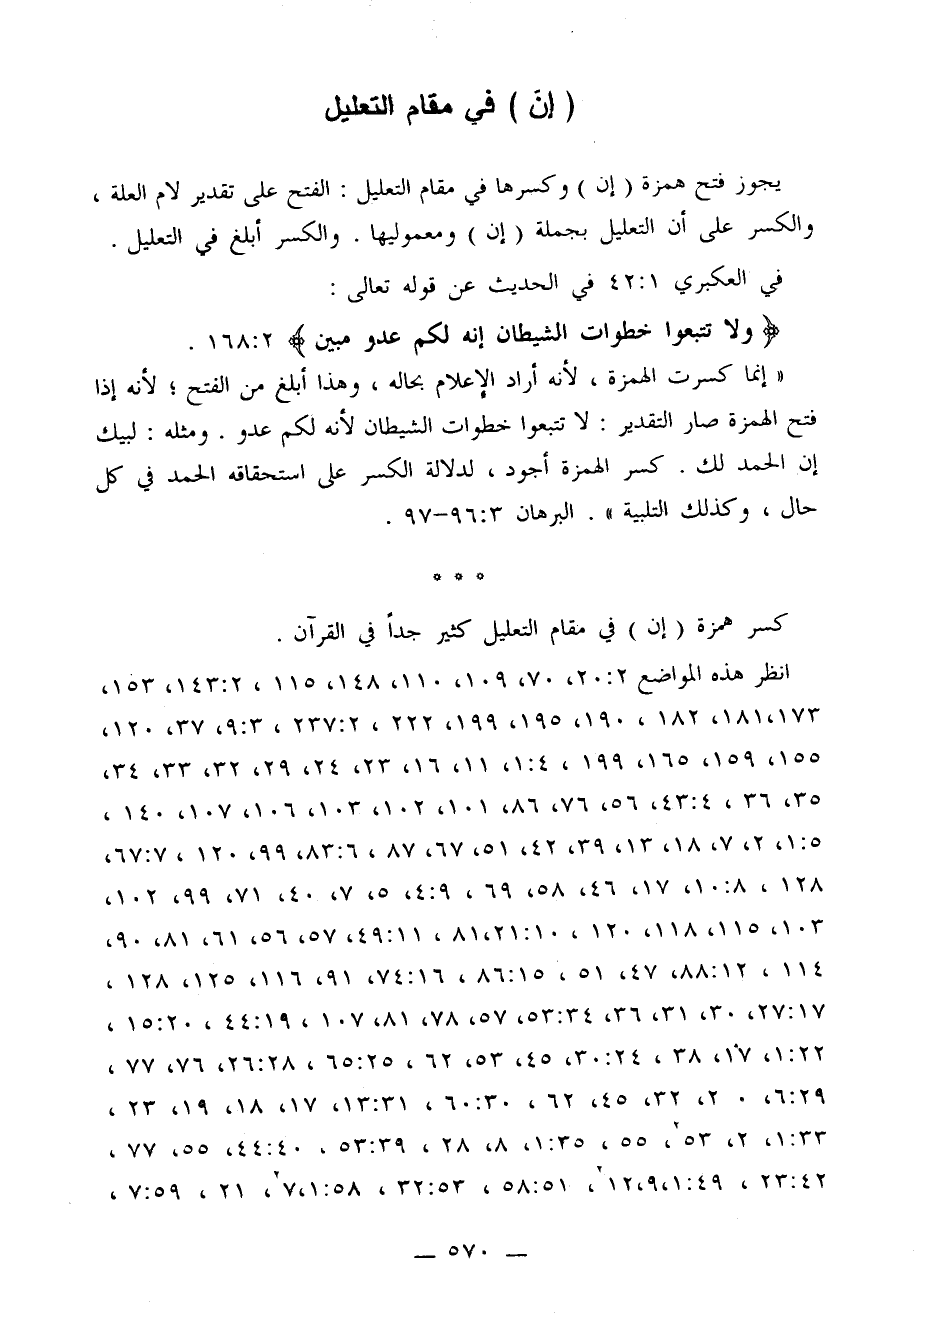 ( إنَ ) في مقام التعليل
يجوز فتح همزة ( إن ) وكسرها في مقام التعليل : الفتح على تقدير لام العلة ،
والكسر على أن التعليل بجملة ( إن ) ومعموليها . والكسر أبلغ في التعليل .
في العكبري ٤٢:١ في الحديث عن قوله تعالى :
﴿ ولا تتبعوا خطوات الشيطان إنه لكم عدو مبين ﴾ ١٦٨:٢ .
« إنما كسرت الهمزة ، لأنه أراد الإعلام بحاله ، وهذا أبلغ من الفتح ؛ لأنه إذا
فتح الهمزة صار التقدير : لا تتبعوا خطوات الشيطان لأنه لكم عدو . ومثله : لبيك
إن الحمد لك . كسر الهمزة أجود ، لدلالة الكسر على استحقاقه الحمد في كل
حال ، وكذلك التلبية » . البرهان ٩٦:٣–٩٧ .
* * *
كسر همزة ( إن ) في مقام التعليل كثير جداً في القرآن .
انظر هذه المواضع ٢٠:٢، ٧٠، ١٠٩، ١١٠، ١٤٨، ١١٥ ، ١٤٣:٢، ١٥٣،
١٨١،١٧٣، ١٨٢ ، ١٩٠، ١٩٥، ١٩٩، ٢٢٢ ، ٢٣٧:٢ ، ٩:٣، ٣٧، ١٢٠،
١٥٥، ١٥٩، ١٦٥، ١٩٩ ، ١:٤، ١١، ١٦، ٢٣، ٢٤، ٢٩، ٣٢، ٣٣، ٣٤،
٣٥، ٣٦ ، ٤٣:٤، ٥٦، ٧٦، ٨٦، ١٠١، ١٠٢، ١٠٣، ١٠٦، ١٠٧، ١٤٠ ،
١:٥، ٢، ٧، ١٨، ١٣، ٣٩، ٤٢، ٥١، ٦٧، ٨٧ ، ٨٣:٦، ٩٩، ١٢٠ ، ٦٧:٧،
١٢٨ ، ١٠:٨، ١٧، ٤٦، ٥٨، ٦٩ ، ٤:٩، ٥، ٧، ٤٠، ٧١، ٩٩، ١٠٢،
١٠٣، ١١٥، ١١٨، ١٢٠ ، ٨١،٢١:١٠ ، ٤٩:١١، ٥٧، ٥٦، ٦١، ٨١، ٩٠،
١١٤ ، ٨٨:١٢، ٤٧، ٥١ ، ٨٦:١٥ ، ٧٤:١٦، ٩١، ١١٦، ١٢٥، ١٢٨ ،
٢٧:١٧، ٣٠، ٣١، ٣٦، ٥٣:٣٤، ٥٧، ٧٨، ٨١، ١٠٧ ، ٤٤:١٩ ، ١٥:٢٠ ،
١:٢٢، ١٧، ٣٨ ، ٣٠:٢٤، ٤٥، ٥٣، ٦٢ ، ٦٥:٢٥ ، ٢٦:٢٨، ٧٦، ٧٧ ،
٦:٢٩، ٢٠، ٣٢، ٤٥، ٦٢ ، ٦٠:٣٠ ، ١٣:٣١، ١٧، ١٨، ١٩، ٢٣ ،
١:٣٣، ٢، ٥٣٢، ٥٥ ، ١:٣٥، ٨، ٢٨ ، ٥٣:٣٩ ، ٤٤:٤٠، ٥٥، ٧٧ ،
٢٣:٤٢ ، ١٢،٩،١:٤٩٢، ٥٨:٥١ ، ٣٢:٥٣ ، ٧،١:٥٨٢، ٢١ ، ٧:٥٩ ،
— ٥٧٠ —